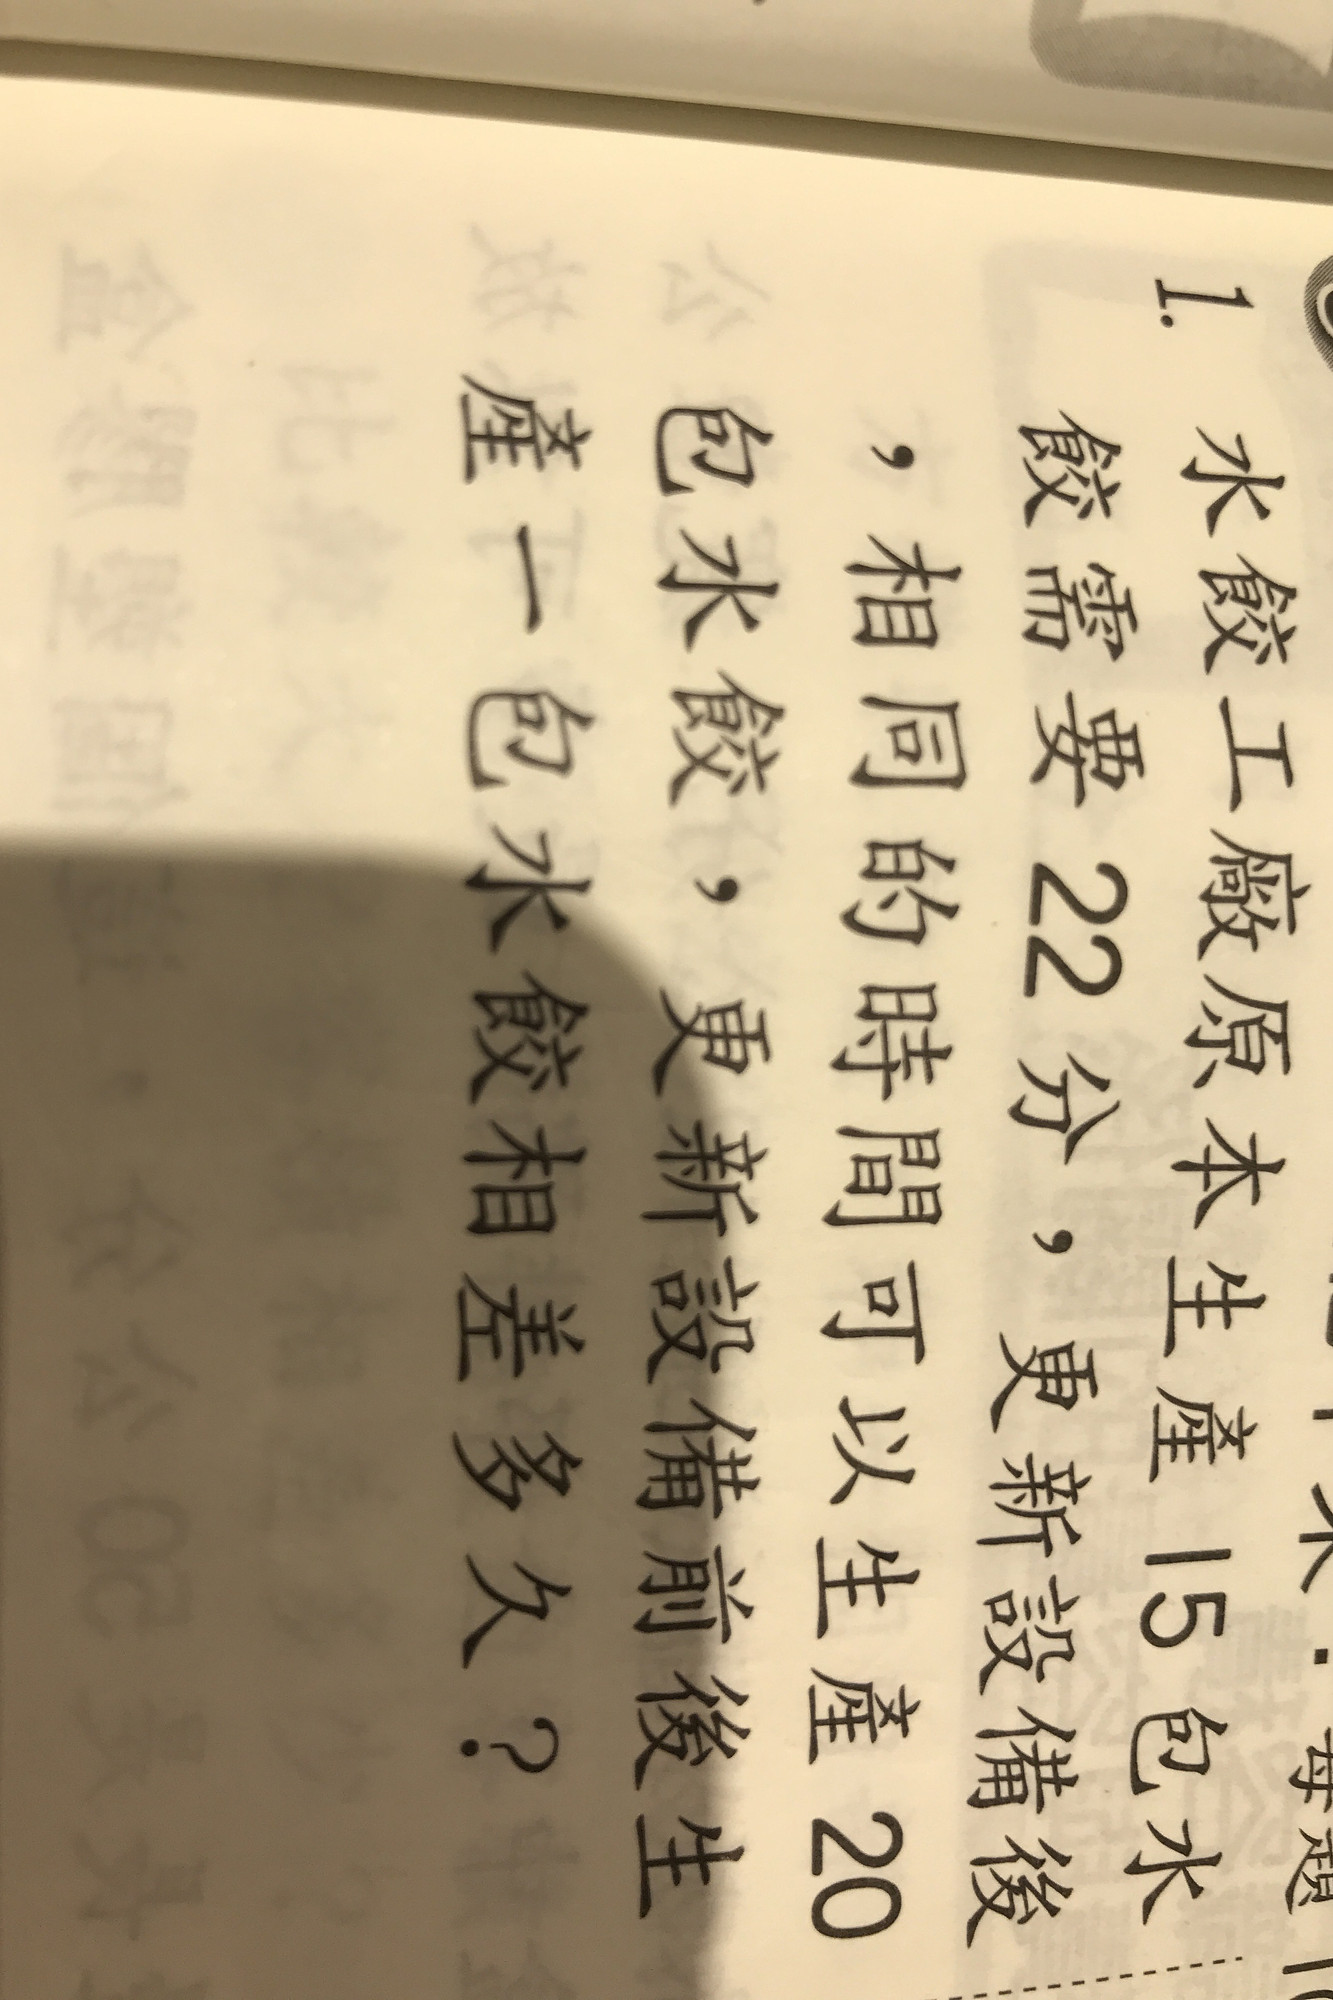 1. 水餃工廠原本生產 15 包水
餃需要 22 分，更新設備後
，相同的時間可以生產 20
包水餃，更新設備前後生
產一包水餃相差多久？